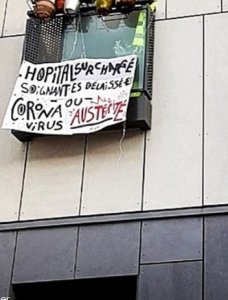 HOPITAL SURCHARGÉ
SOIGNANTES DÉLAISSÉE
CORONA OU
VIRUS AUSTÉRITÉ
er